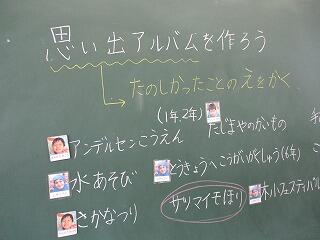 思い出アルバムを作ろう
たのしかったことのえをかく
(1年、2年)
アンデルセンこうえん
たじまやのかいもの
水あそび
とうきょうへこうがいがくしゅう(6年)
さかなつり
サツマイモほり
木小フェスティバル